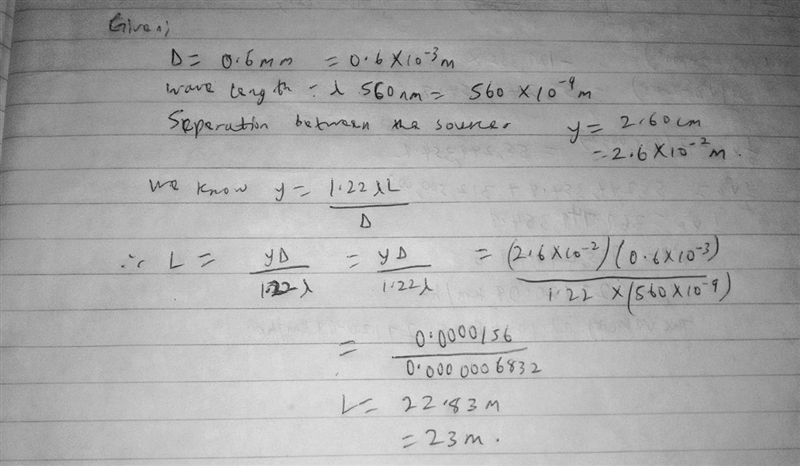 Given;
D = 0.6mm = 0.6 × 10⁻³m
wave length = λ 560nm = 560 × 10⁻⁹m
Seperation between the source. y = 2.60 cm
= 2.6 × 10⁻² m.
we know y = 1.22 λL / D
∴ L = yD / 1.22λ = yD / 1.22λ = (2.6 × 10⁻²) (0.6 × 10⁻³) / 1.22 × (560 × 10⁻⁹)
= 0.0000156 / 0.0000006832
L = 22.83 m
= 23 m.